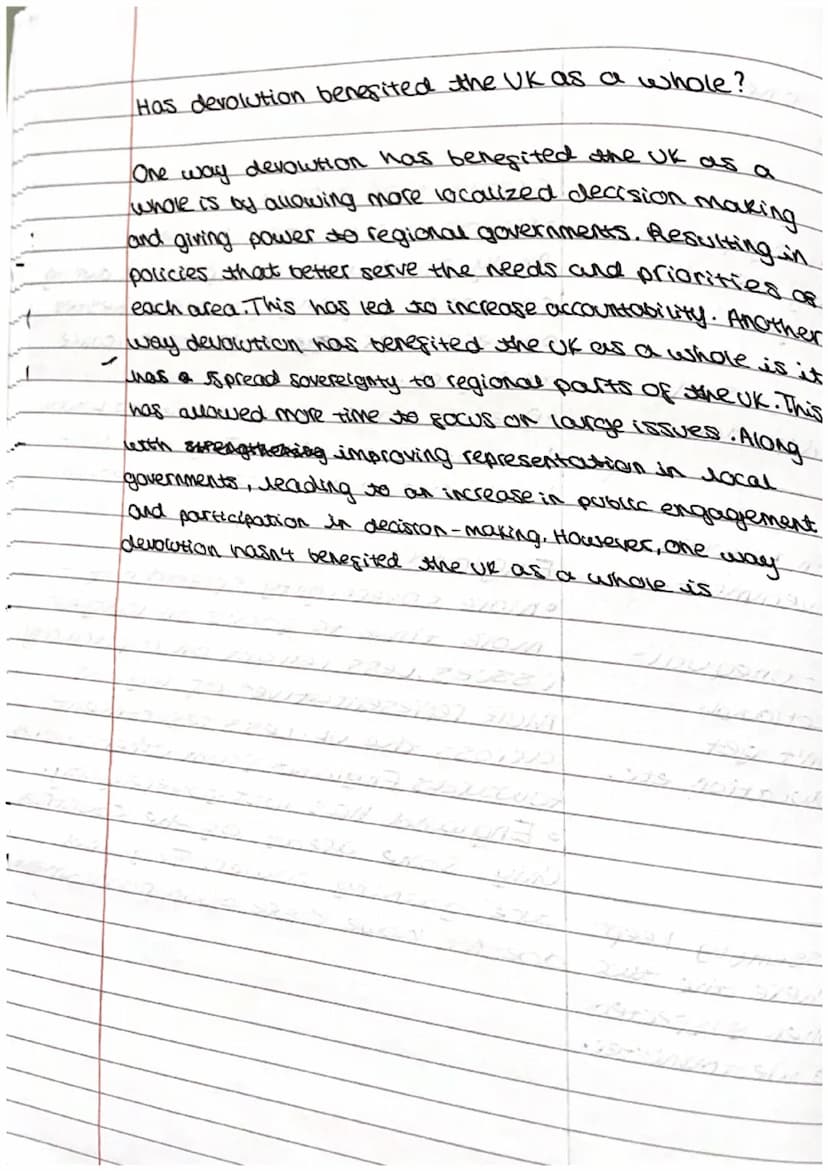 Has devolution benefited the UK as a whole?
One way devolution has benefited the UK as a
whole is by allowing more localized decision making
and giving power to regional governments. Resulting in
policies that better serve the needs and priorities of
each area. This has led to increase accountability. Another
way devolution has benefited the UK as a whole is it
has a spread sovereignty to regional parts of the UK. This
has allowed more time to focus on large issues. Along
with strengthening improving representation in local
governments, leading to an increase in public engagement
and participation in decision-making. However, one way
devolution hasn't benefited the UK as a whole is